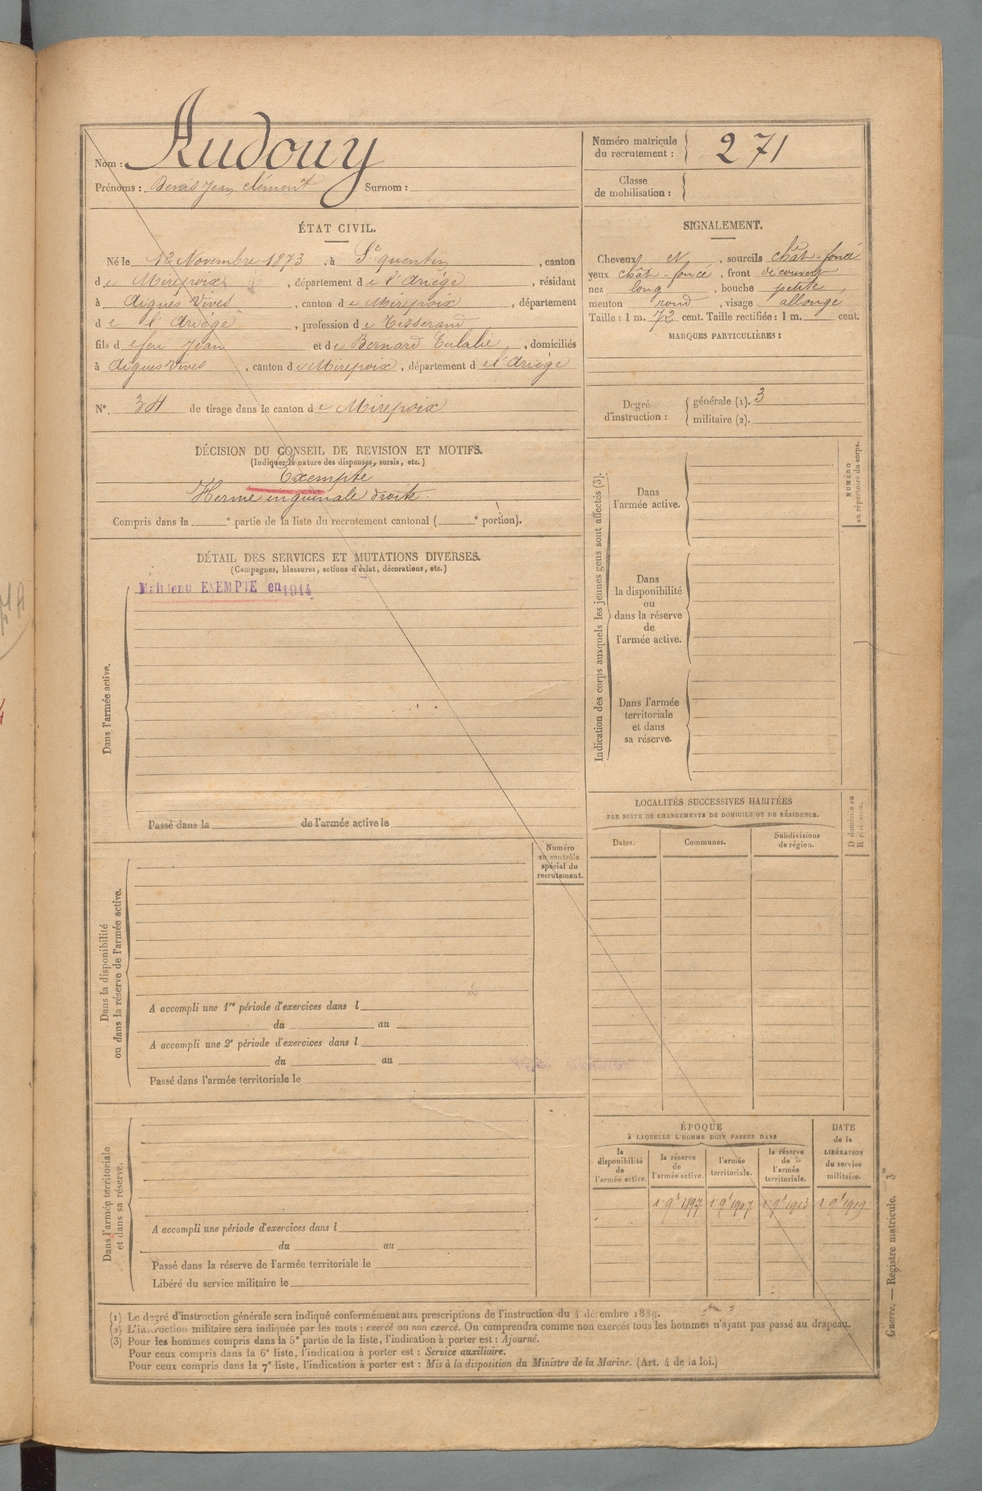 Nom : Audouy
Prénoms : Denis Jean Clément Surnom :
Numéro matricule du recrutement : 271
Classe de mobilisation :
ÉTAT CIVIL.
Né le 12 Novembre 1873, à St quentin, canton
de Mirepoix, département de l'Ariége, résidant
à Aigues Vives, canton de Mirepoix, département
de l'Ariége, profession de Tisserand
fils de feu Jean et de Bernard Eulalie, domiciliés
à Aigues Vives, canton de Mirepoix, département de l'Ariége
N°. 34 de tirage dans le canton de Mirepoix
SIGNALEMENT.
Cheveux et, sourcils chât-foncé
yeux chât-foncé, front découvert
nez long, bouche petite,
menton rond, visage allongé
Taille : 1 m. 72 cent. Taille rectifiée : 1 m. cent.
MARQUES PARTICULIÈRES :
Degré d'instruction : générale (1). 3
militaire (2).
DÉCISION DU CONSEIL DE REVISION ET MOTIFS.
(Indiquer la nature des dispenses, sursis, etc.)
Exempté
Hernie inguinale droite.
Compris dans la e partie de la liste du recrutement cantonal ( e portion).
DÉTAIL DES SERVICES ET MUTATIONS DIVERSES.
(Campagnes, blessures, actions d'éclat, décorations, etc.)
Maintenu EXEMPTÉ en 1914
Dans l'armée active.
Passé dans la de l'armée active le
Indication des corps auxquels les jeunes gens sont affectés (3).
NUMÉRO au répertoire du corps.
Dans l'armée active.
Dans la disponibilité ou dans la réserve de l'armée active.
Dans l'armée territoriale et dans sa réserve.
LOCALITÉS SUCCESSIVES HABITÉES
PAR SUITE DE CHANGEMENTS DE DOMICILE OU DE RÉSIDENCE.
Dates. Communes. Subdivisions de région.
Numéro au contrôle spécial du recrutement.
Dans la disponibilité ou dans la réserve de l'armée active.
A accompli une 1re période d'exercices dans l
du au
A accompli une 2e période d'exercices dans l
du au
Passé dans l'armée territoriale le
Dans l'armée territoriale et dans sa réserve.
A accompli une période d'exercices dans l
du au
Passé dans la réserve de l'armée territoriale le
Libéré du service militaire le
ÉPOQUE
À LAQUELLE L'HOMME DOIT PASSER DANS
la disponibilité de l'armée active. la réserve de l'armée active. l'armée territoriale. la réserve de l'armée territoriale.
DATE de la LIBÉRATION du service militaire.
1 9e 1897 1 9e 1907 1 9e 1913 1 9e 1919
(1) Le degré d'instruction générale sera indiqué conformément aux prescriptions de l'instruction du 4 décembre 1889.
(2) L'instruction militaire sera indiquée par les mots : exercé ou non exercé. On comprendra comme non exercés tous les hommes n'ayant pas passé au drapeau.
(3) Pour les hommes compris dans la 5e partie de la liste, l'indication à porter est : Ajourné.
Pour ceux compris dans la 6e liste, l'indication à porter est : Service auxiliaire.
Pour ceux compris dans la 7e liste, l'indication à porter est : Mis à la disposition du Ministre de la Marine. (Art. 4 de la loi.)
Guerre. — Registre matricule.